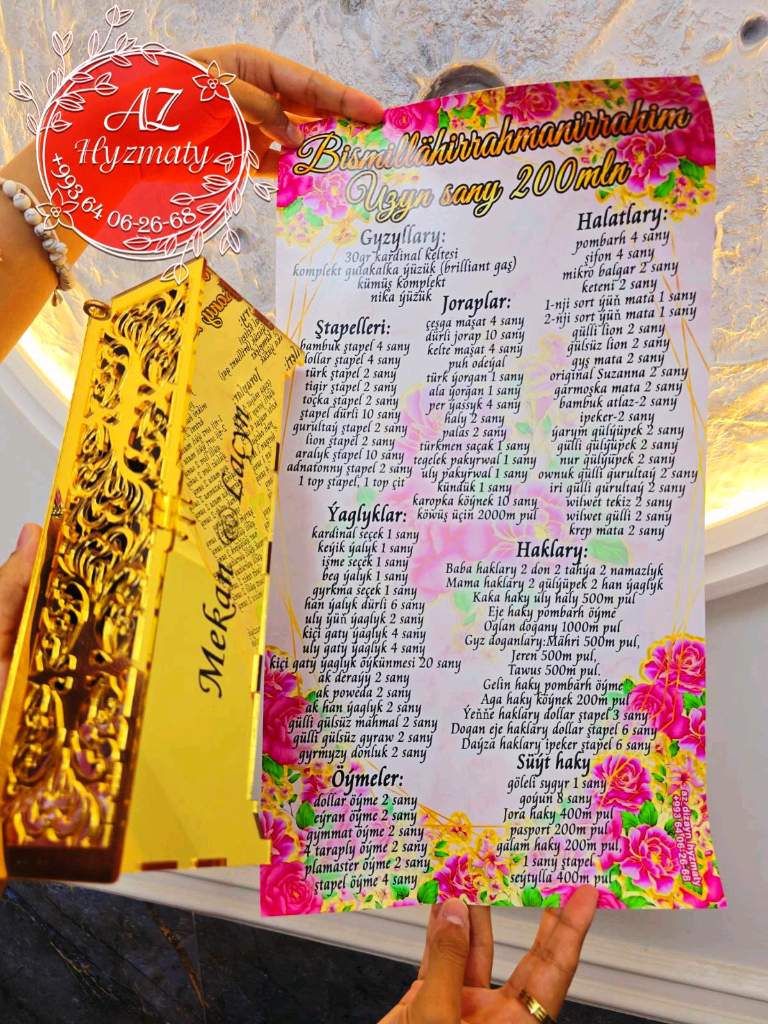 AZ
Hyzmaty
+993 64 06-26-68
Bismillähirrahmanirrahim
Uzyn sany 200mln
Gyzyllary:
30gr kardinal keltesi
komplekt gulakalka ýüzük (brilliant gaş)
kümüş komplekt
nika ýüzük
Ştapelleri:
bambuk ştapel 4 sany
dollar ştapel 4 sany
türk ştapel 2 sany
tigir ştapel 2 sany
toçka ştapel 2 sany
ştapel dürli 10 sany
gurultaý ştapel 2 sany
lion ştapel 2 sany
aralyk ştapel 10 sany
adnatonny ştapel 2 sany
1 top ştapel, 1 top çit
Ýaglyklar:
kardinal seçek 1 sany
keýik ýalyk 1 sany
işme seçek 1 sany
beg ýalyk 1 sany
gyrkma seçek 1 sany
han ýalyk dürli 6 sany
uly ýüň ýaglyk 2 sany
kiçi gaty ýaglyk 4 sany
uly gaty ýaglyk 4 sany
kiçi gaty ýaglyk öýkünmesi 20 sany
ak deraýy 2 sany
ak poweda 2 sany
ak han ýaglyk 2 sany
gülli gülsüz mahmal 2 sany
gülli gülsüz gyraw 2 sany
gyrmyzy donluk 2 sany
Öýmeler:
dollar öýme 2 sany
eýran öýme 2 sany
gymmat öýme 2 sany
4 taraply öýme 2 sany
plamaster öýme 2 sany
ştapel öýme 4 sany
Joraplar:
çeşga maşat 4 sany
dürli jorap 10 sany
kelte maşat 4 sany
puh odeýal
türk ýorgan 1 sany
ala ýorgan 1 sany
per ýassyk 4 sany
haly 2 sany
palas 2 sany
türkmen saçak 1 sany
tegelek pakyrwal 1 sany
uly pakyrwal 1 sany
kündük 1 sany
karopka köýnek 10 sany
köwüş üçin 2000m pul
Halatlary:
pombarh 4 sany
şifon 4 sany
mikro balgar 2 sany
keteni 2 sany
1-nji sort ýüň mata 1 sany
2-nji sort ýüň mata 1 sany
gülli lion 2 sany
gülsüz lion 2 sany
guş mata 2 sany
original Suzanna 2 sany
garmoşka mata 2 sany
bambuk atlaz-2 sany
ipeker-2 sany
ýarym gülýüpek 2 sany
gülli gülýüpek 2 sany
nur gülýüpek 2 sany
ownuk gülli gurultaý 2 sany
iri gülli gurultaý 2 sany
wilwet tekiz 2 sany
wilwet gülli 2 sany
krep mata 2 sany
Haklary:
Baba haklary 2 don 2 tahýa 2 namazlyk
Mama haklary 2 gülýüpek 2 han ýaglyk
Kaka haky uly haly 500m pul
Eje haky pombarh öýme
Oglan dogany 1000m pul
Gyz doganlary:Mähri 500m pul,
Jeren 500m pul,
Tawus 500m pul,
Gelin haky pombarh öýme
Aga haky köýnek 200m pul
Ýeňňe haklary dollar ştapel 3 sany
Dogan eje haklary dollar ştapel 6 sany
Daýza haklary ipeker ştapel 6 sany
Süýt haky
göleli sygyr 1 sany
goýun 8 sany
Jora haky 400m pul
pasport 200m pul
galam haky 200m pul,
1 sany ştapel
seýtylla 400m pul
az.dizayn.hyzmaty
+993'64'06'26-68
Mekan & Laçyn